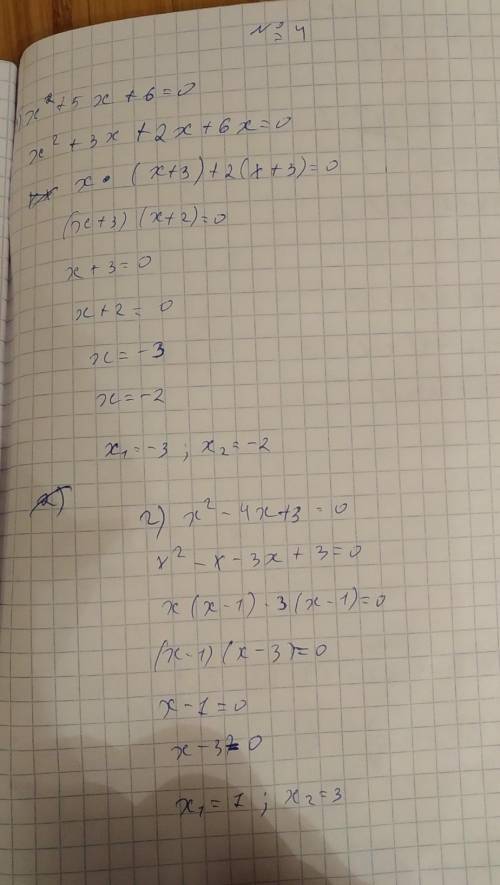 № 4
1) x² + 5x + 6 = 0
x² + 3x + 2x + 6x = 0
x • (x+3) + 2(x+3) = 0
(x+3) (x+2) = 0
x + 3 = 0
x + 2 = 0
x = -3
x = -2
x₁ = -3 ; x₂ = -2
2) x² - 4x + 3 = 0
x² - x - 3x + 3 = 0
x (x-1) - 3 (x-1) = 0
(x-1) (x-3) = 0
x - 1 = 0
x - 3 = 0
x₁ = 1 ; x₂ = 3